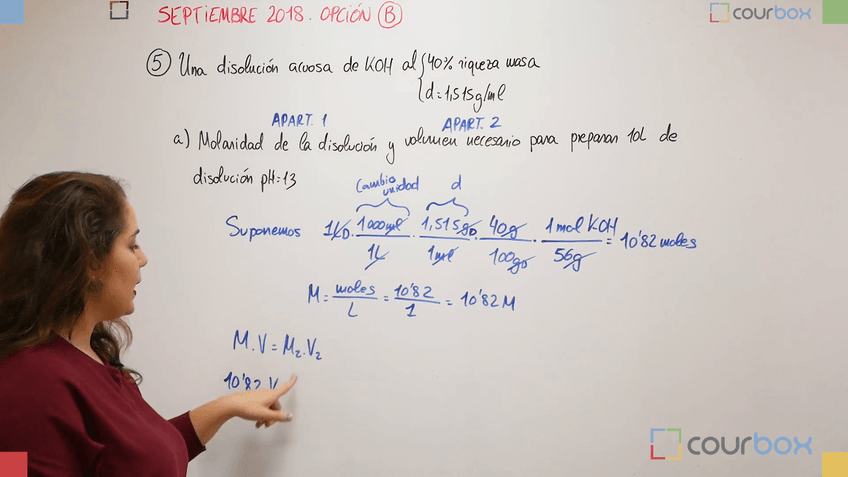 SEPTIEMBRE 2018. OPCIÓN B
courbox
5 Una disolución acuosa de KOH al { 40% riqueza masa
d = 1,515 g/ml
APART. 1 APART. 2
a) Molaridad de la disolución y volumen necesario para preparar 10L de
disolución pH=13
Cambio unidad d
Suponemos 1L D · 1000ml/1L · 1,515g D/1ml · 40g/100g D · 1 mol KOH/56g = 10'82 moles
M = moles/L = 10'82/1 = 10'82 M
M.V = M2.V2
10'82 V
courbox